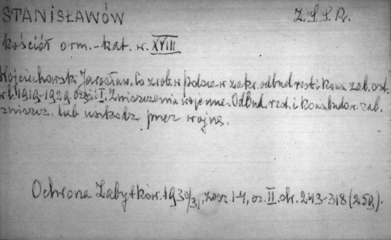 STANISŁAWÓW Z.S.S.R.
kościół orm.-kat. w. XVIII
Wojciechowski Jarosław. Co zrob. w Polsce w zakr. odbud. rest. i kons. zab. ost.
w l. 1919-1929 cz. I. Zniszczenia wojenne. Odbud. rest. i kons. budow. zab.
zniszcz. lub uszkodz. przez wojnę.
Ochrona Zabytków. 1930/31, zesz. 1-4, cz. II. str. 243-318 (258).